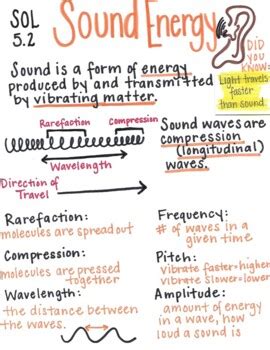 SOL
5.2
Sound Energy
DID
YOU
KNOW:
Light travels
"faster
than sound.
Sound is a form of energy
produced by and transmitted
by vibrating matter.
Rarefaction
Compression
Wavelength
Direction of
Travel
Sound waves are
compression
(longitudinal)
waves.
Rarefaction:
molecules are spread out
Compression:
molecules are pressed
together
Wavelength:
the distance between
the waves.
Frequency:
# of waves in a
given time
Pitch:
vibrate faster=higher
vibrate slower=lower
Amplitude:
amount of energy
in a wave, how
loud a sound is